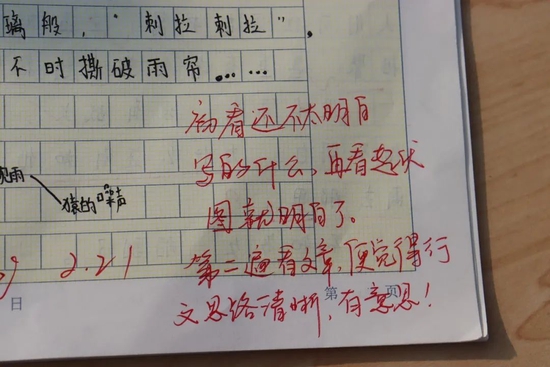 璃般，"刺拉刺拉"，
不时撕破雨帘……
初看还不太明白
写的什么，再看起伏
图就明白了。
雨
猿的啼声
2.21
第二遍看文章，便觉得行
文思路清晰，有意思！
日
第 页